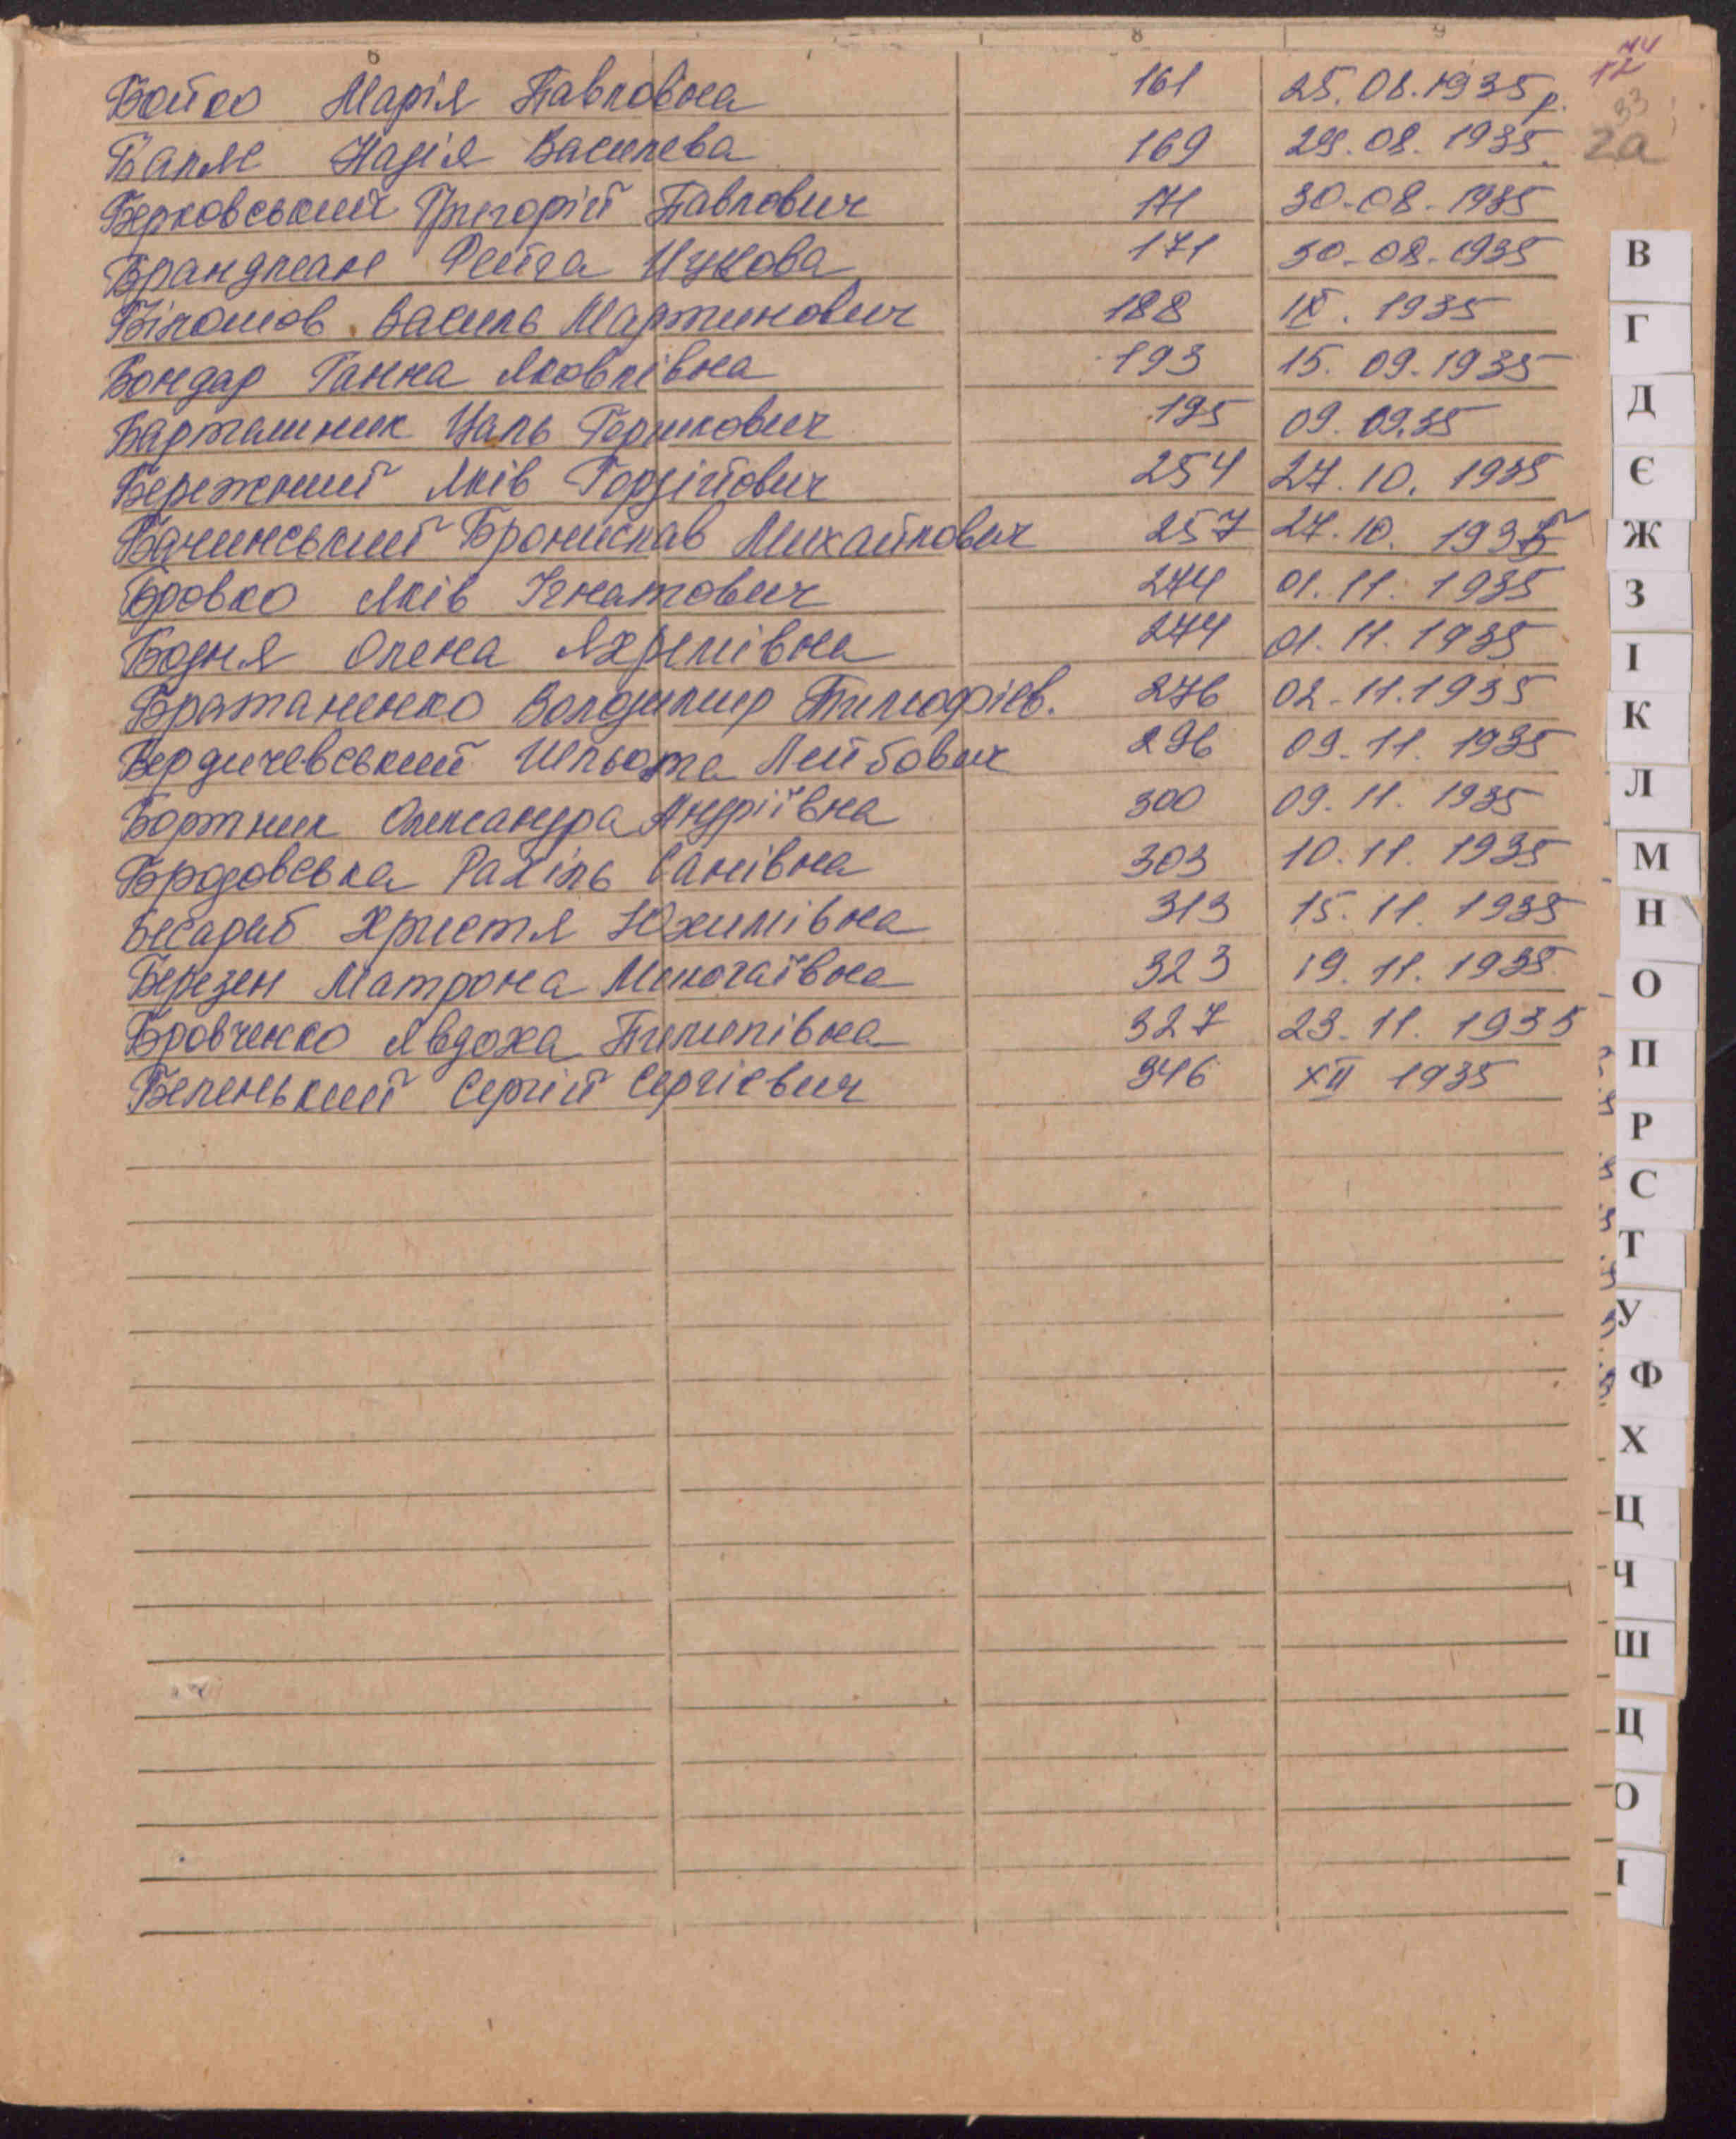 6 7 8 9
Бойко Марія Павловна 161 25.08.1935р.
Валме Надія Васильева 169 29.08.1935.
2а
Берковський Григорій Павлович 171 30-08-1935
Брандман Фейга Ицкова 171 30-08-1935
Білошов Василь Мартинович 188 IX. 1935
Бондар Ганна Яковлівна 193 15.09.1935
Барташник Цаль Гершкович 195 09.09.35
Бережний Яків Гордійович 254 27.10.1935
Бачинський Бронислав Михайлович 257 27.10.1935
Бровко Яків Ігнатович 274 01.11.1935
Бодня Олена Яхремівна 274 01.11.1935
Братаненко Володимир Тимофієв. 276 02-11.1935
Бердичевський Шльома Лейбович 296 09.11.1935
Бортник Олександра Андріївна 300 09.11.1935
Бродовська Рахіль Санівна 303 10.11.1935
Бесараб Христя Юхимівна 313 15.11.1935
Березен Матрона Миколаївна 323 19.11.1935
Бровченко Явдоха Пилипівна 327 23.11.1935
Беленький Сергій Сергієвич 346 XII 1935
В
Г
Д
Є
Ж
З
І
К
Л
М
Н
О
П
Р
С
Т
У
Ф
Х
Ц
Ч
Ш